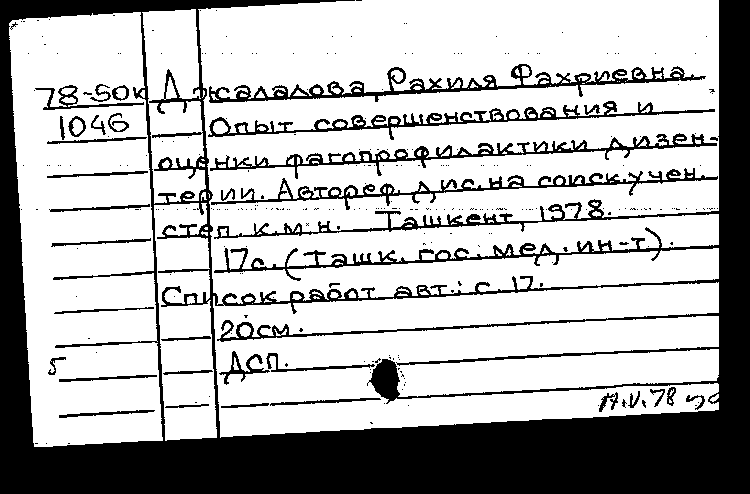 78-50к Джалалова, Рахиля Фахриевна.
1046 Опыт совершенствования и
оценки фагопрофилактики дизен-
терии. Автореф. дис. на соиск. учен.
степ. к.м.н. Ташкент, 1978.
17с. (Ташк. гос. мед. ин-т).
Список работ авт.: с. 17.
20см.
5 ДСП.
17.V.78